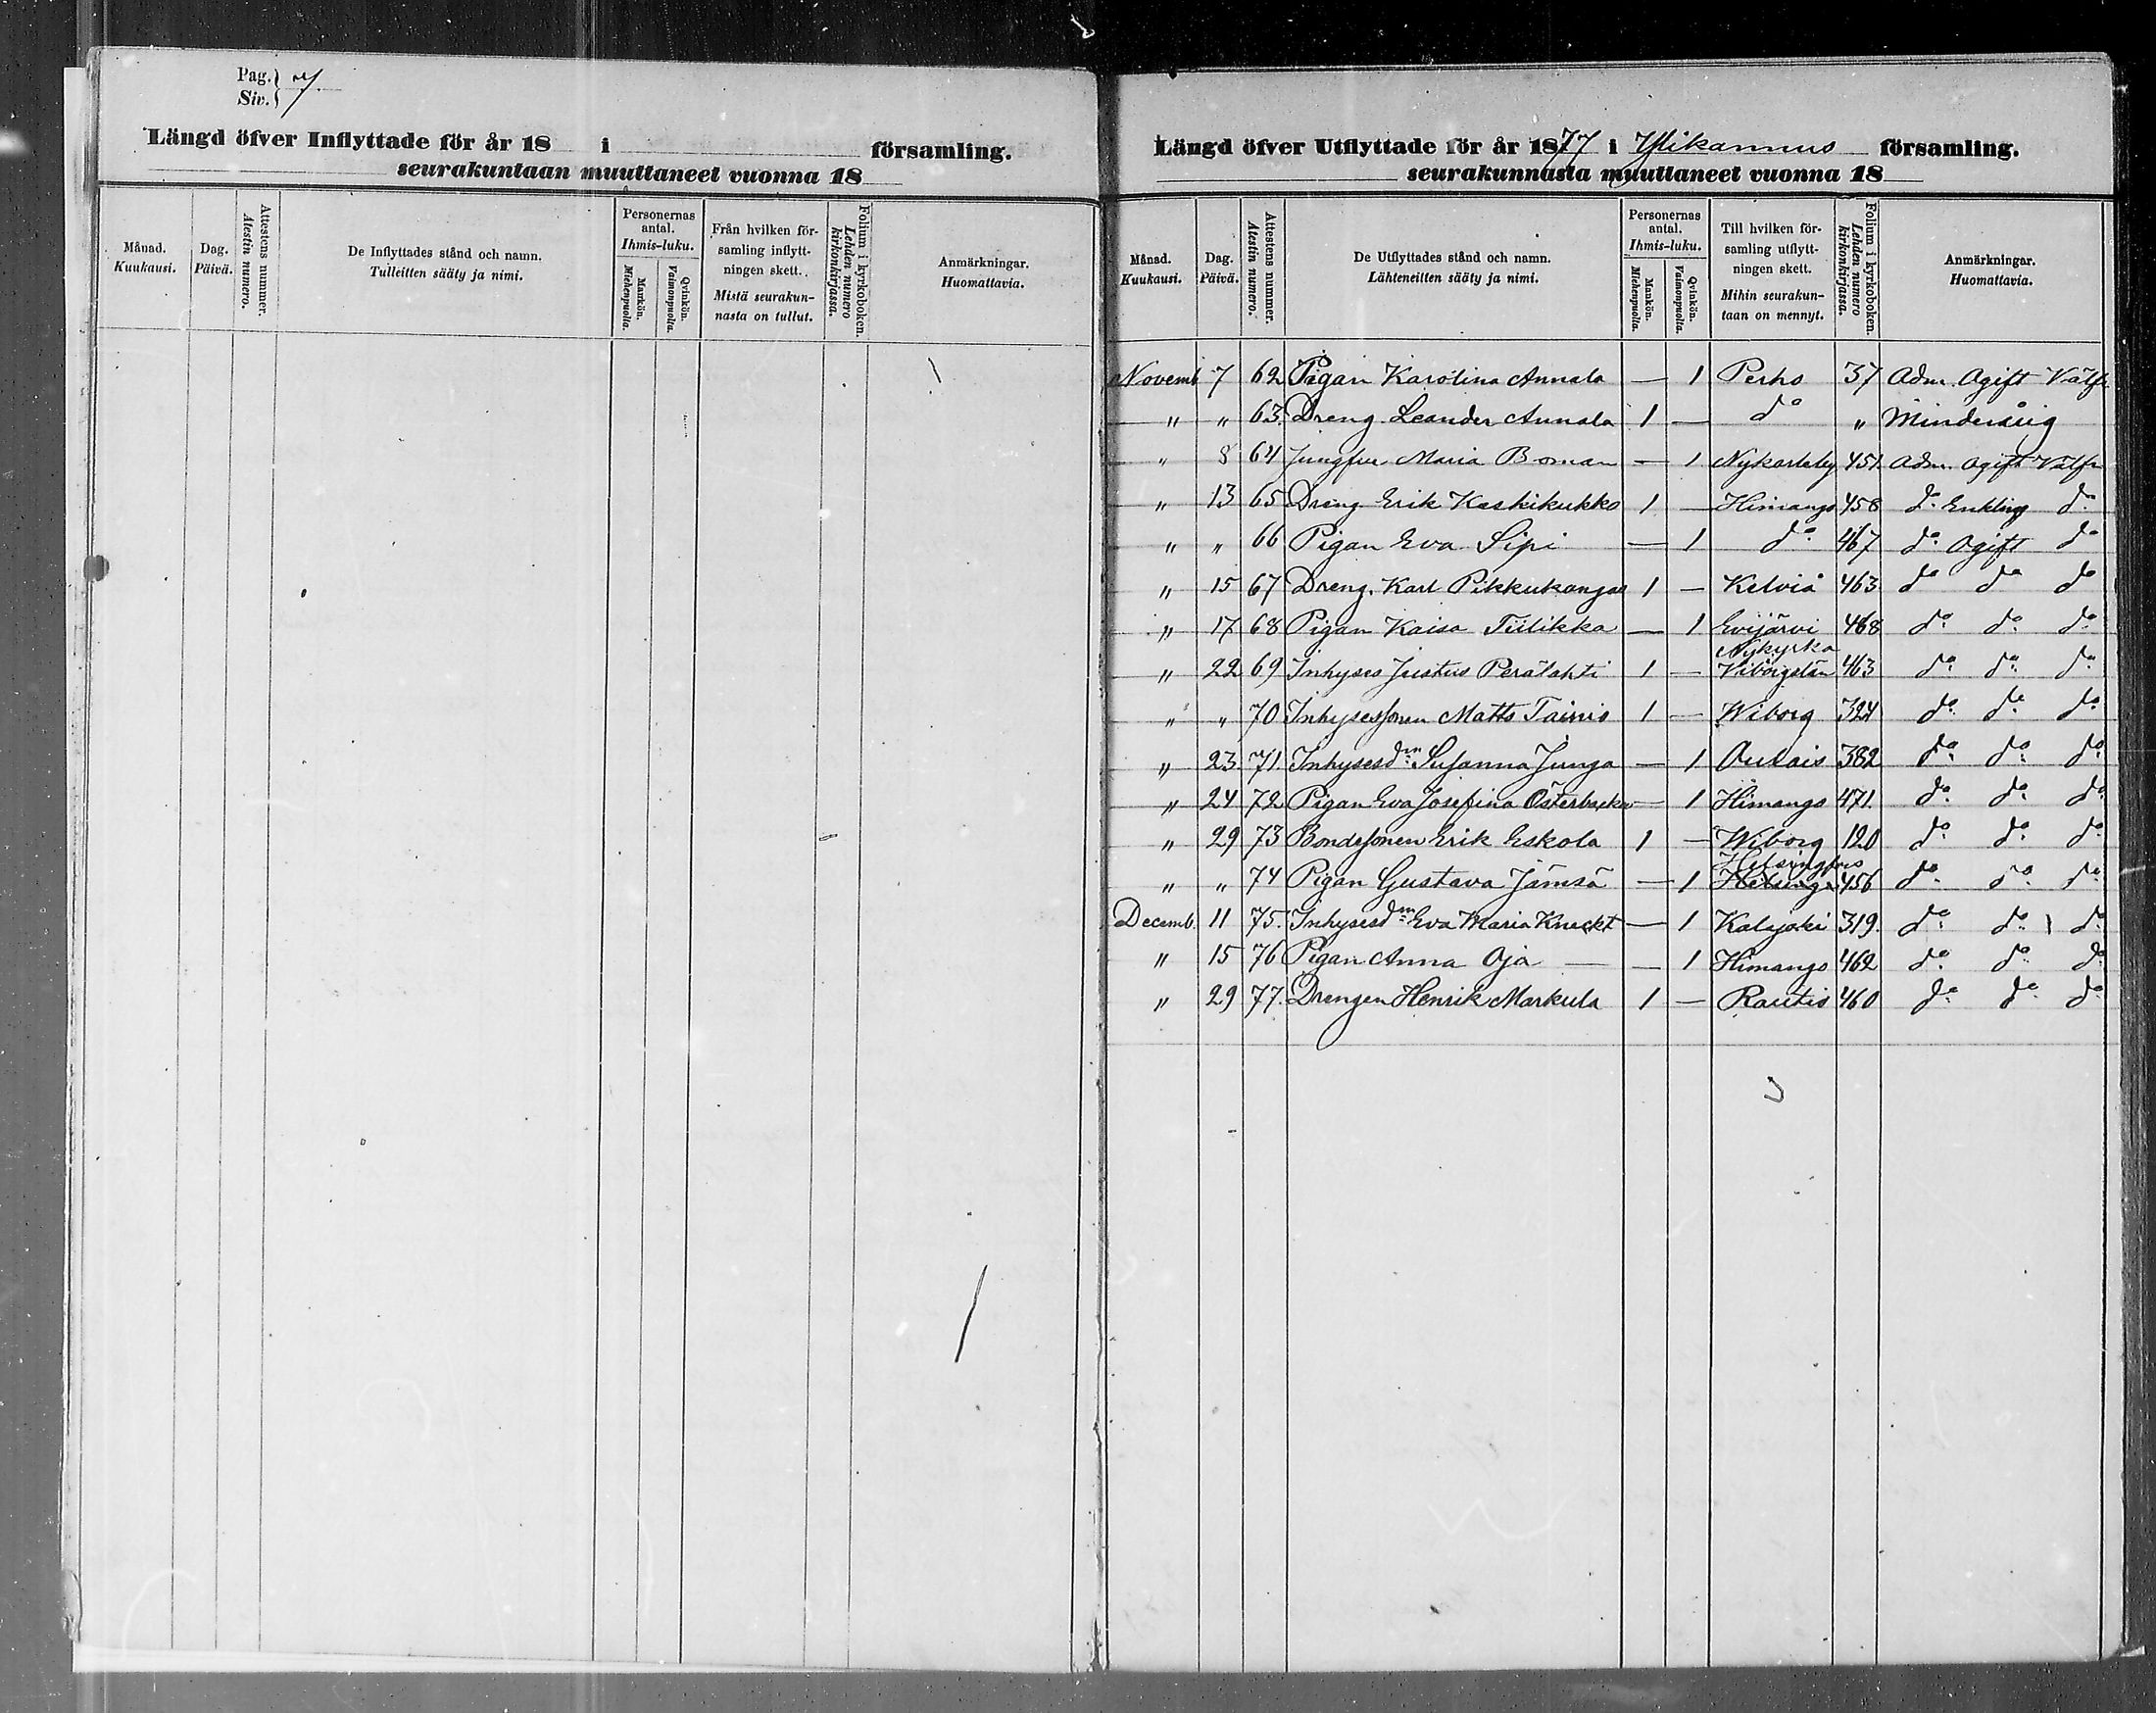 Pag. } 7.
Siv.
Längd öfver Inflyttade för år 18 i församling.
seurakuntaan muuttaneet vuonna 18
Månad. Kuukausi.
Dag. Päivä.
Attestens nummer. Atestin numero.
De Inflyttades stånd och namn. Tulleitten sääty ja nimi.
Personernas antal. Ihmis-luku.
Mankön. Miehenpuolta.
Qvinkön. Vaimonpuolta.
Från hvilken för-
samling inflytt-
ningen skett.
Mistä seurakun-
nasta on tullut.
Folium i kyrkoboken. Lehden numero kirkonkirjassa.
Anmärkningar. Huomattavia.
Längd öfver Utflyttade för år 1877 i Ylikannus församling.
seurakunnasta muuttaneet vuonna 18
Månad. Kuukausi.
Dag. Päivä.
Attestens nummer. Atestin numero.
De Utflyttades stånd och namn. Lähteneitten sääty ja nimi.
Personernas antal. Ihmis-luku.
Mankön. Miehenpuolta.
Qvinkön. Vaimonpuolta.
Till hvilken för-
samling utflytt-
ningen skett.
Mihin seurakun-
taan on mennyt.
Folium i kyrkoboken. Lehden numero kirkonkirjassa.
Anmärkningar. Huomattavia.
Novemb 7 62 Pigan Karolina Annala — 1 Perho 37 Adm. Ogift Välfr
" " 63. Dreng Leander Annala 1 — do " Minderårig
" 8 64 Jungfru Maria Boman — 1 Nykarleby 451 Adm. ogift Välfr
" 13 65 Dreng Erik Keskikukko 1 — Himango 458 do Enkling do
" " 66 Pigan Eva Sipi — 1 do 467 do Ogift do
" 15 67 Dreng. Karl Pikkukangas 1 — Kelviå 463 do do do
" 17 68 Pigan Kaisa Tiilikka — 1 Evijärvi 468 do do do
" 22 69 Inhyses Justus Perälahti 1 — Nykyrka Viborgslän 463 do do do
" " 70 Inhysessonen Matts Tainio 1 — Wiborg 324 do do do
" 23. 71. Inhysesdn Susanna Junga — 1 382 do do do
" 24 72 Pigan Eva Josefina Österbacka — 1 Himango 471 do do do
" 29 73 Bondesonen Erik Eskola 1 — Wiborg 120 do do do
" " 74 Pigan Gustava Jämsä — 1 Helsingfors 456 do do do
Decemb. 11 75. Inhysesdn Eva Maria Kneckt — 1 Kalajoki 319. do do do
" 15 76 Pigan Anna Oja — — 1 Himango 462 do do do
" 29 77. Drengen Henrik Markula 1 — Rautio 460 do do do